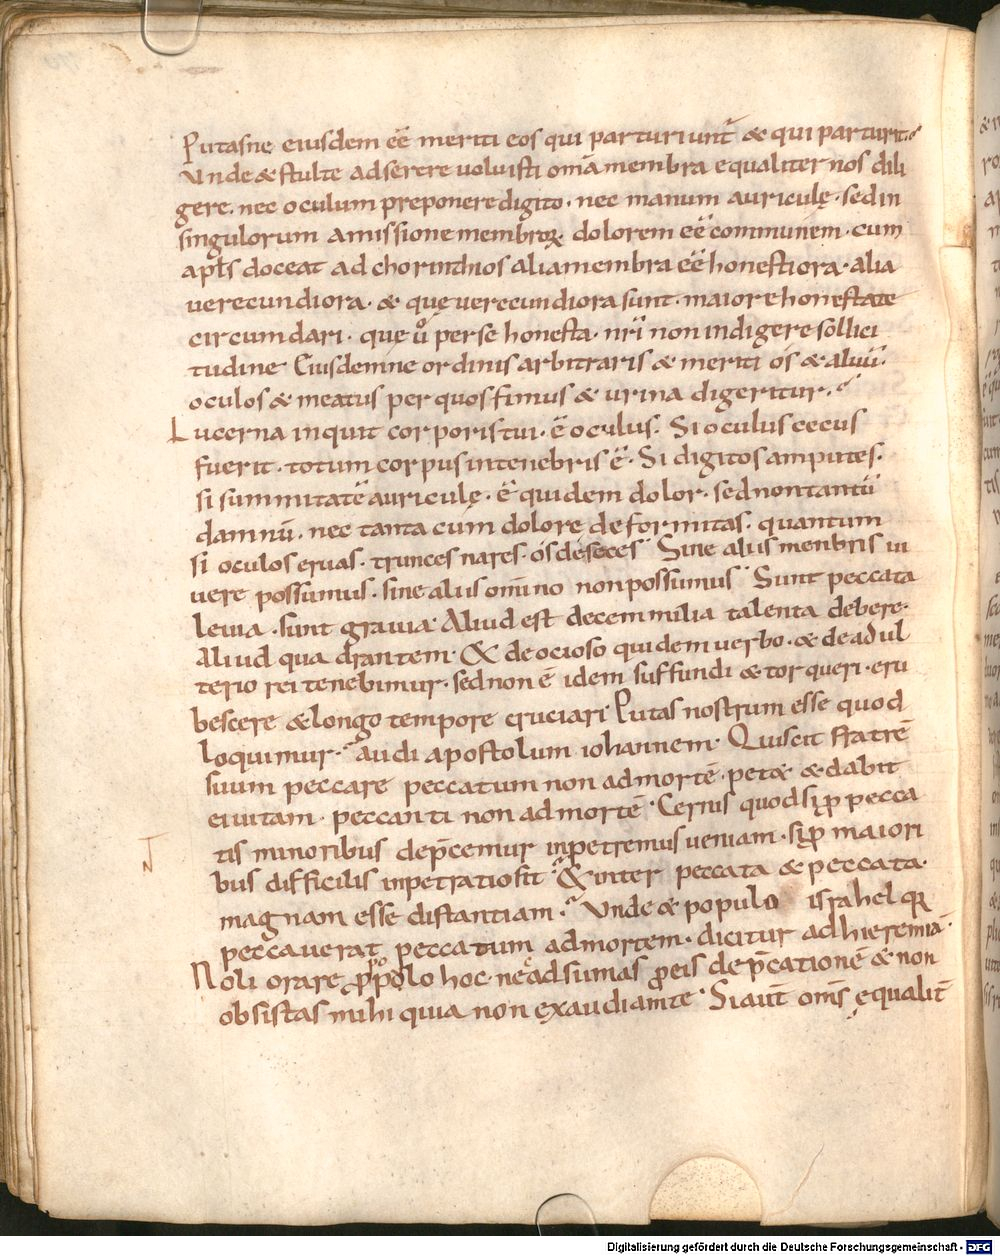 Putasne eiusdem eē meriti eos qui parturiunt̄ & qui parturit.
Unde & stulte adserere uoluisti om̄a membra equaliter nos dili
gere. nec oculum preponere digito. nec manum auriculę. sed in
singulorum amissione membroꝝ dolorem eē communem. cum
apl̄s doceat ad chorinthios alia membra eē honestiora. alia
uerecundiora. & quę uerecundiora sunt. maiore honestate
circumdari. que ů per se honesta. nr̄i non indigere sollici
tudine. Eiusdemne ordinis arbitraris & meriti os & aluū.
oculos & meatus per quos fimus & urina digeritur.
Lucerna inquit corporis tui. ē oculus. Si oculus cecus
fuerit. totum corpus in tenebris ē. Si digitos amputes.
si summitatē auriculę. ē quidem dolor. sed non tantū
damnū. nec tanta cum dolore deformitas. quantum
si oculos eruas. trunces nares. os deseces. Sine aliis menbris ui
uere possumus. sine aliis omīno non possumus. Sunt peccata
leuia. sunt grauia. Aliud est decem milia talenta debere.
aliud quadrantem. & de ocioso quidem uerbo. & de adul
terio rei tenebimur. sed non ē idem suffundi & torqueri. eru
bescere & longo tempore cruciari. Putas nostrum esse quod
loquimur. audi apostolum iohannem. Qui scit fratrē
suum peccare peccatum non ad mortē. petat & dabit
ei uitam. peccanti non ad mortē. Cernis quod si ꝓ pecca
tis minoribus dep̄cemur inpetremus ueniam. si ꝓ maiori
bus difficilis inpetratio sit. & inter peccata & peccata.
magnam esse distantiam. Unde & populo israhel qꝛ
peccauerat peccatum ad mortem. dicitur ad hieremiā.
Noli orare ꝓ popolo hoc. nec adsumas ꝓ eis dep̄cationē & non
obsistas mihi quia non exaudiam te. Si aut̄ om̄s ęqualit̄
Digitalisierung gefördert durch die Deutsche Forschungsgemeinschaft - DFG